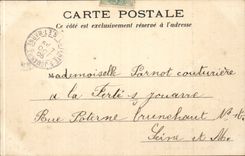 CARTE POSTALE
Ce côté est exclusivement réservé à l'adresse
Mademoiselle Parnot couturière
a la Ferté s jouarre
Rue Poterne Crunchaut
Seine et M.